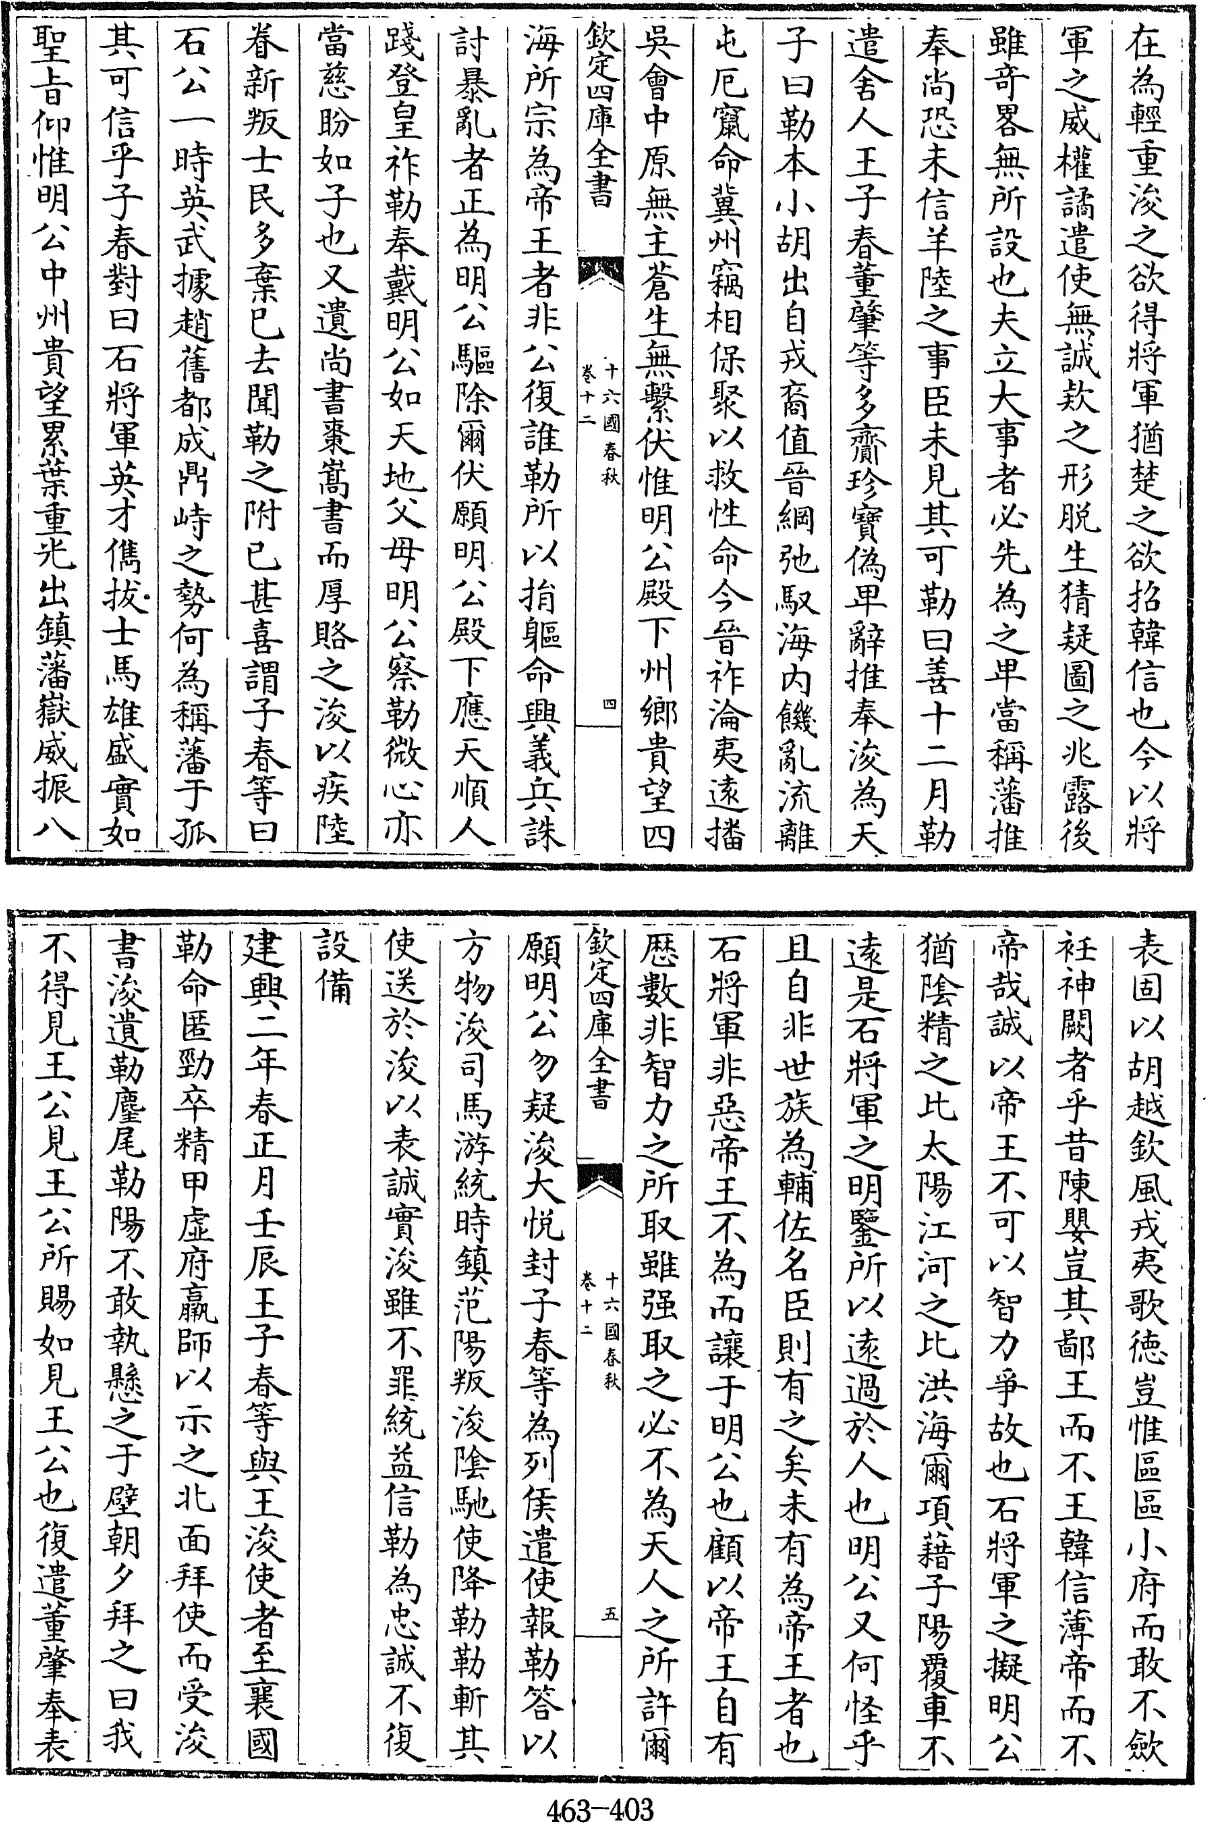 在為輕重浚之欲得將軍猶楚之欲招韓信也今以將
軍之威權譎遣使無誠欵之形脱生猜疑圖之兆露後
雖竒畧無所設也夫立大事者必先為之卑當稱藩推
奉尚恐未信羊陸之事臣未見其可勒曰善十二月勒
遣舍人王子春董肇等多齎珍寶偽卑辭推奉浚為天
子曰勒本小胡出自戎裔值晉綱弛馭海内饑亂流離
屯厄竄命冀州竊相保聚以救性命今晉祚淪夷遠播
吳會中原無主蒼生無繫伏惟明公殿下州鄉貴望四
欽定四庫全書
十六國春秋
卷十二
四
海所宗為帝王者非公復誰勒所以捐軀命興義兵誅
討暴亂者正為明公驅除爾伏願明公殿下應天順人
踐登皇祚勒奉戴明公如天地父母明公察勒微心亦
當慈盼如子也又遺尚書棗嵩書而厚賂之浚以疾陸
眷新叛士民多棄已去聞勒之附已甚喜謂子春等曰
石公一時英武據趙舊都成鼎峙之勢何為稱藩于孤
其可信乎子春對曰石將軍英才儁拔士馬雄盛實如
聖旨仰惟明公中州貴望累葉重光出鎮藩嶽威振八
表固以胡越欽風戎夷歌德豈惟區區小府而敢不歛
衽神闕者乎昔陳嬰豈其鄙王而不王韓信薄帝而不
帝哉誠以帝王不可以智力爭故也石將軍之擬明公
猶陰精之比太陽江河之比洪海爾項藉子陽覆車不
遠是石將軍之明鑒所以遠過於人也明公又何怪乎
且自非世族為輔佐名臣則有之矣未有為帝王者也
石將軍非惡帝王不為而讓于明公也顧以帝王自有
厯數非智力之所取雖强取之必不為天人之所許爾
欽定四庫全書
十六國春秋
卷十二
五
願明公勿疑浚大悦封子春等為列侯遣使報勒答以
方物浚司馬游統時鎮范陽叛浚陰馳使降勒勒斬其
使送於浚以表誠實浚雖不罪統益信勒為忠誠不復
設備
建興二年春正月壬辰王子春等與王浚使者至襄國
勒命匿勁卒精甲虚府羸師以示之北面拜使而受浚
書浚遺勒麈尾勒陽不敢執懸之于壁朝夕拜之曰我
不得見王公見王公所賜如見王公也復遣董肇奉表
463-403